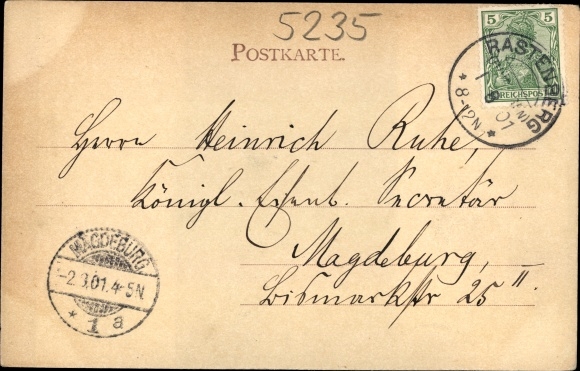 5235
POSTKARTE.
5 5
REICHSPOST
RASTENBERG
8-12N.
Herrn Heinrich Ruhe,
Königl. Eisenb. Secretär
Magdeburg,
Bismarckstr 25 II.
MAGDEBURG
-2.9.01.4-5N.
* 1 a